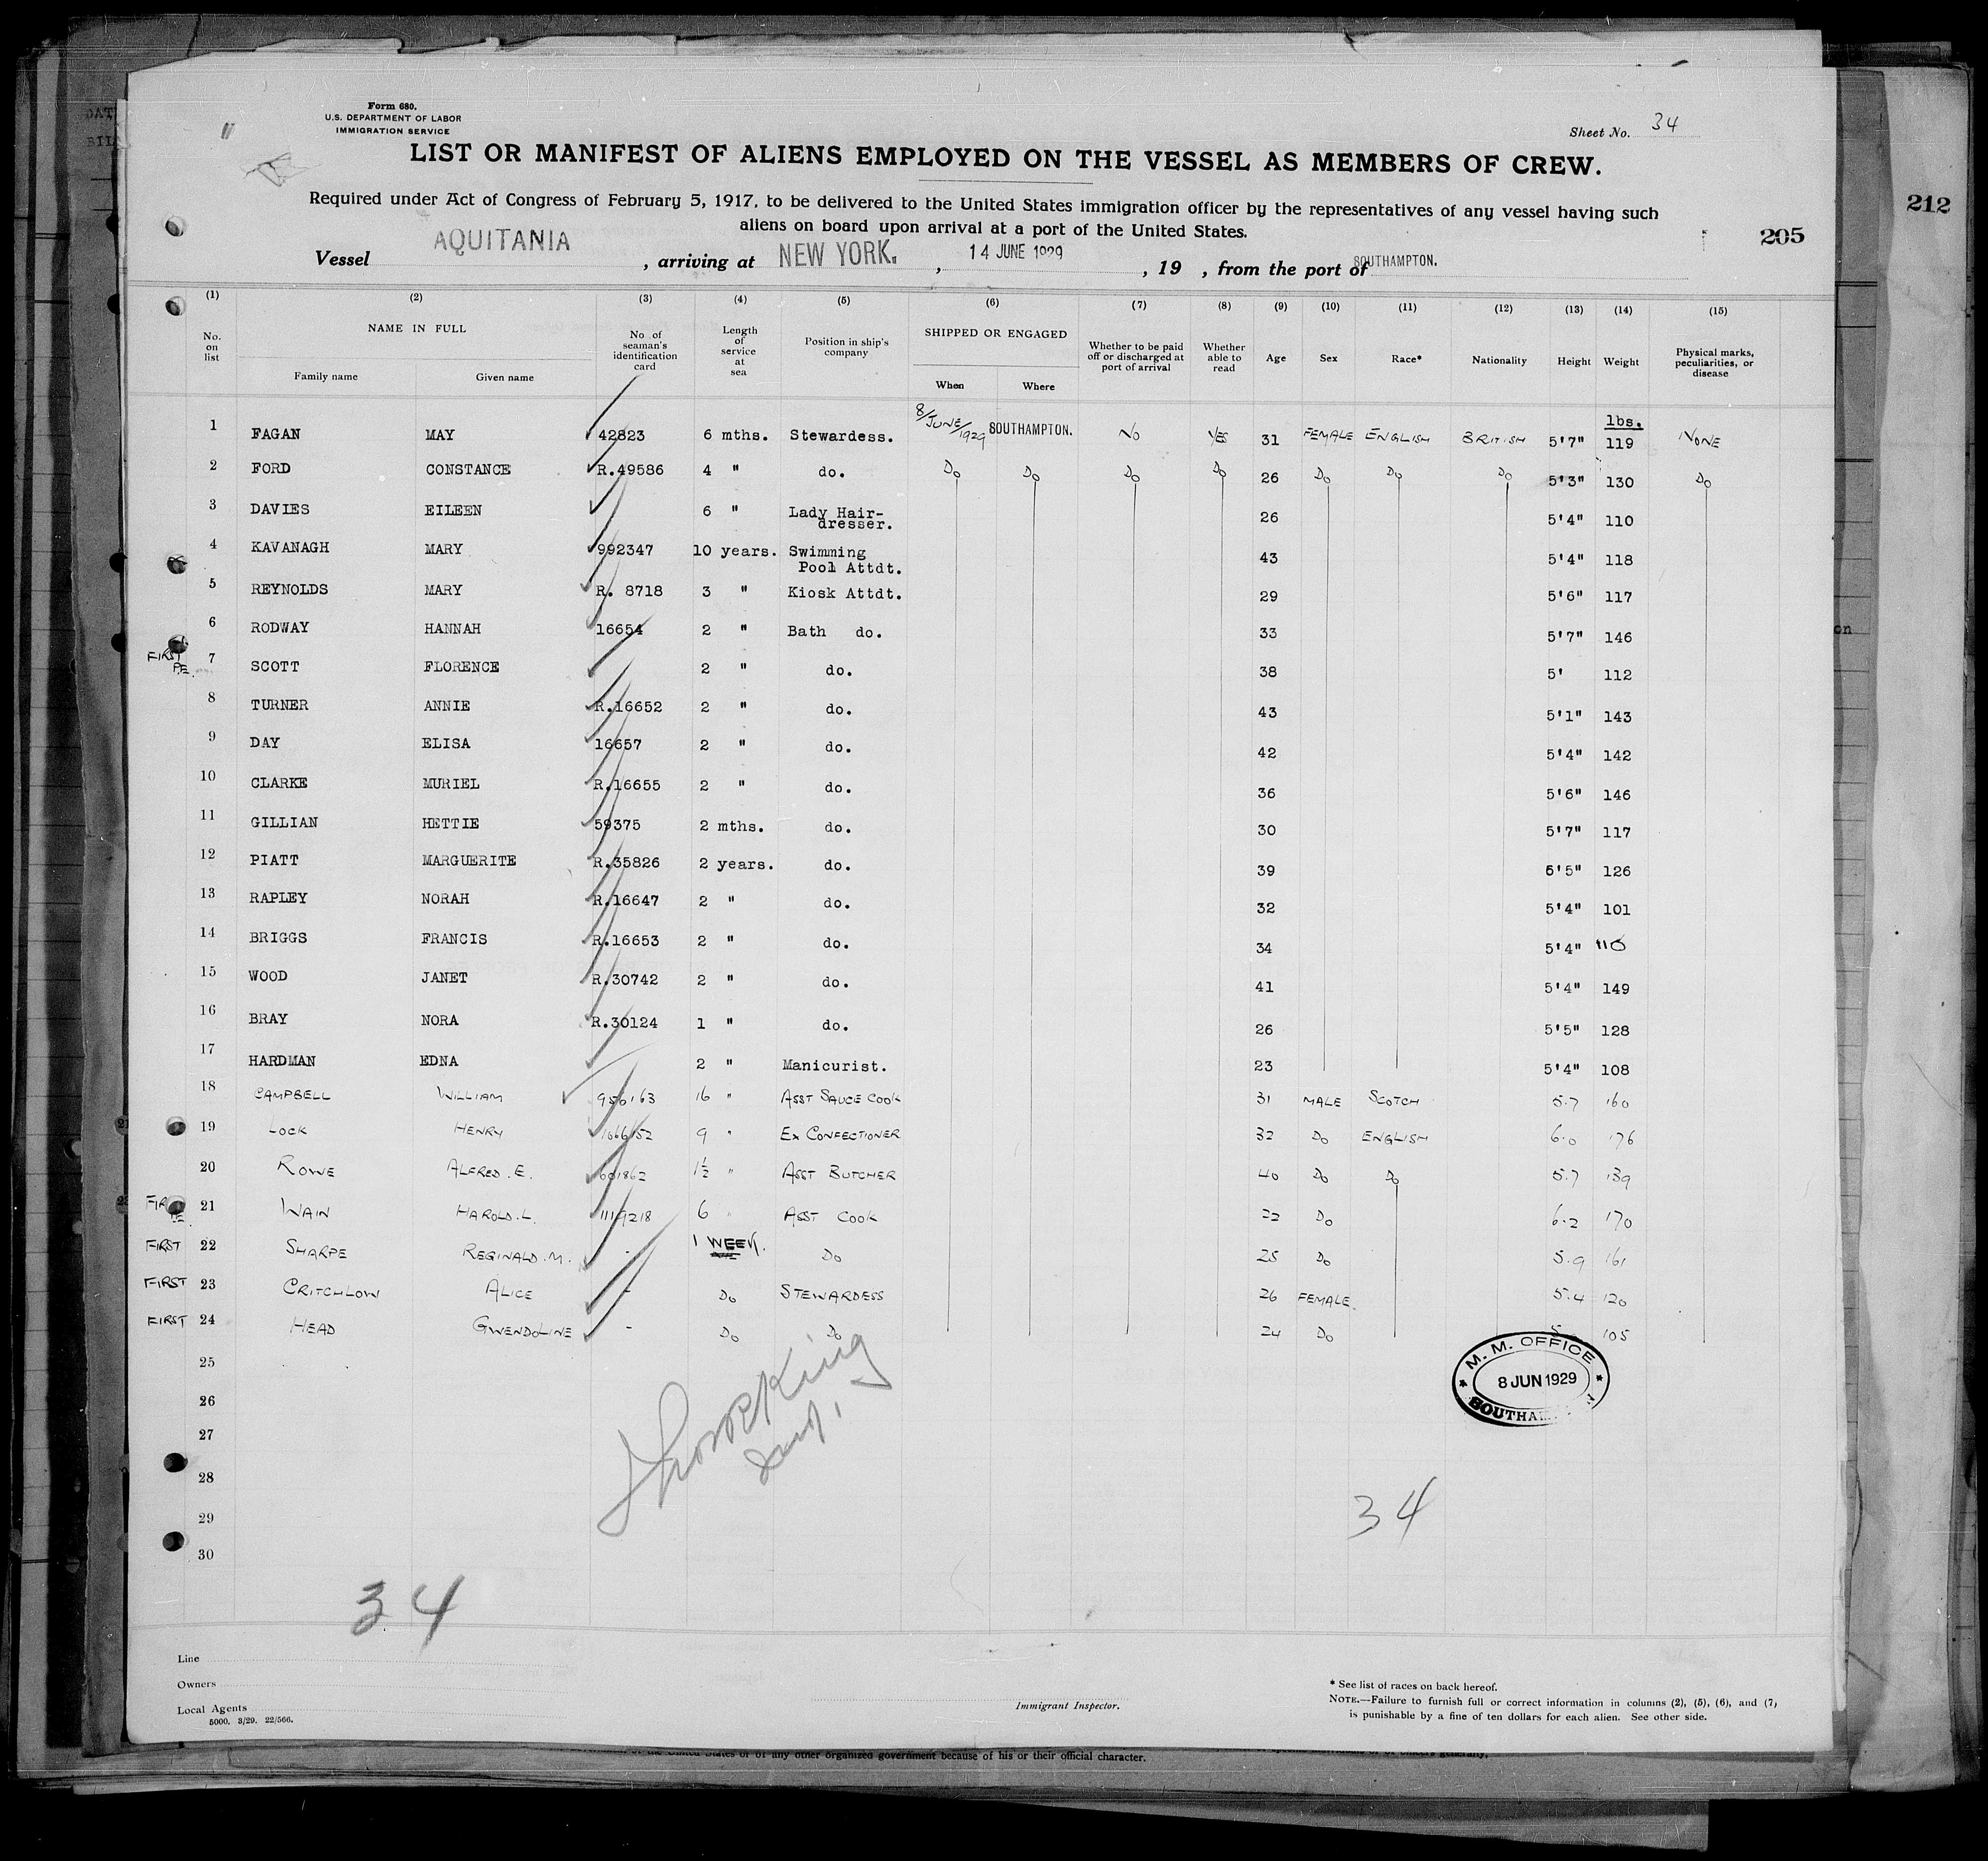 Form 680.
U.S. DEPARTMENT OF LABOR
IMMIGRATION SERVICE
Sheet No. 34
LIST OR MANIFEST OF ALIENS EMPLOYED ON THE VESSEL AS MEMBERS OF CREW.
Required under Act of Congress of February 5, 1917, to be delivered to the United States immigration officer by the representatives of any vessel having such
aliens on board upon arrival at a port of the United States.
212
205
Vessel AQUITANIA, arriving at NEW YORK., 14 JUNE 1929, 19 , from the port of SOUTHAMPTON.
(1) (2) (3) (4) (5) (6) (7) (8) (9) (10) (11) (12) (13) (14) (15)
No. on list NAME IN FULL Family name Given name No. of seaman's identification card Length of service at sea Position in ship's company SHIPPED OR ENGAGED When Where Whether to be paid off or discharged at port of arrival Whether able to read Age Sex Race* Nationality Height Weight Physical marks, peculiarities, or disease
lbs.
1 FAGAN MAY 42823 6 mths. Stewardess. 8/JUNE/1929 SOUTHAMPTON. NO YES 31 FEMALE ENGLISH BRITISH 5'7" 119 NONE
2 FORD CONSTANCE R.49586 4 " do. Do Do Do Do 26 Do Do Do 5'3" 130 Do
3 DAVIES EILEEN 6 " Lady Hair-dresser. 26 5'4" 110
4 KAVANAGH MARY 992347 10 years. Swimming Pool Attdt. 43 5'4" 118
5 REYNOLDS MARY R. 8718 3 " Kiosk Attdt. 29 5'6" 117
6 RODWAY HANNAH 16654 2 " Bath do. 33 5'7" 146
FIRST P.E. 7 SCOTT FLORENCE 2 " do. 38 5' 112
8 TURNER ANNIE R.16652 2 " do. 43 5'1" 143
9 DAY ELISA 16657 2 " do. 42 5'4" 142
10 CLARKE MURIEL R.16655 2 " do. 36 5'6" 146
11 GILLIAN HETTIE 59375 2 mths. do. 30 5'7" 117
12 PIATT MARGUERITE R.35826 2 years. do. 39 6'5" 126
13 RAPLEY NORAH R.16647 2 " do. 32 5'4" 101
14 BRIGGS FRANCIS R.16653 2 " do. 34 5'4"
15 WOOD JANET R.30742 2 " do. 41 5'4" 149
16 BRAY NORA R.30124 1 " do. 26 5'5" 128
17 HARDMAN EDNA 2 " Manicurist. 23 5'4" 108
18 CAMPBELL WILLIAM 956163 16 " ASST SAUCE COOK 31 MALE SCOTCH 5.7 160
19 LOCK HENRY 1066152 9 " EX CONFECTIONER 32 DO ENGLISH 6.0 176
20 ROWE ALFRED.E. 1½ " ASST BUTCHER 40 DO DO 5.7 139
FIRST P.E. 21 WAIN HAROLD.L. 1119218 6 " ASST COOK 22 DO 6.2 170
FIRST 22 SHARPE REGINALD.M. - 1 WEEK. DO 25 DO 5.9 161
FIRST 23 CRITCHLOW ALICE - DO STEWARDESS 26 FEMALE. 5.4 120
FIRST 24 HEAD GWENDOLINE - DO DO 24 DO 5 105
25
26
27
28
29
30
M. M. OFFICE
8 JUN 1929
34
34
Line
Owners
Local Agents
5000. 3/29. 22/566.
Immigrant Inspector.
* See list of races on back hereof.
NOTE.—Failure to furnish full or correct information in columns (2), (5), (6), and (7)
is punishable by a fine of ten dollars for each alien. See other side.
of any other organized government because of his or their official character.